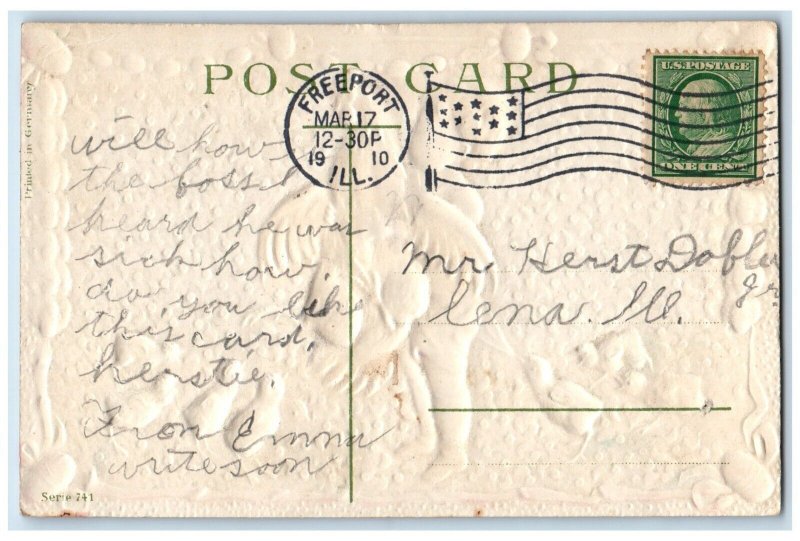 POST CARD
Printed in Germany
FREEPORT
MAR 17
12-30P
19 10
ILL.
U.S. POSTAGE
ONE CENT
will how
the boss I
heard he was
sick how
do you like
this card.
herstie.
From Emma
write soon
Mr Herst Dobler
Jr
Lena. Ill.
Serie 741